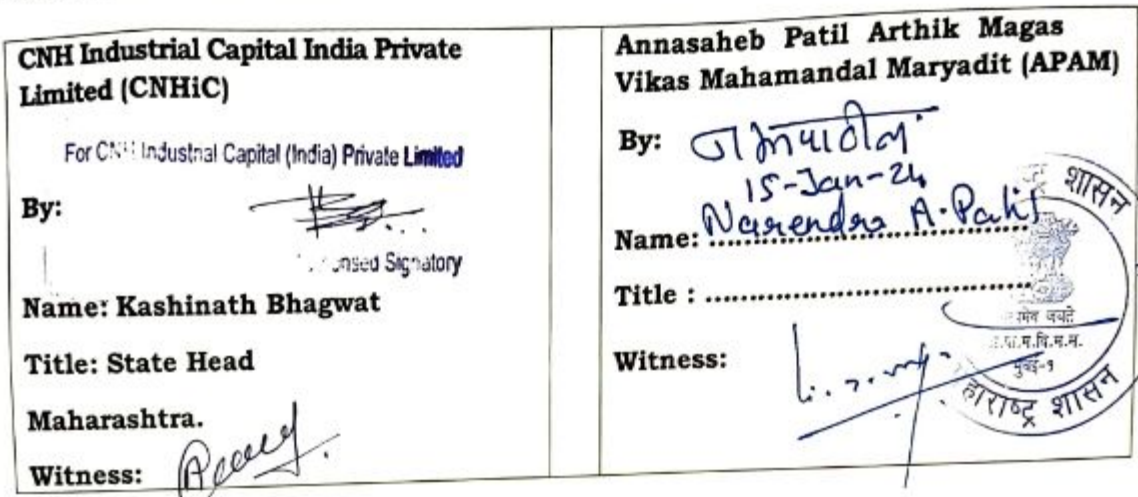 CNH Industrial Capital India Private
Limited (CNHiC)
For CNH Industrial Capital (India) Private Limited
By:
Signatory
Name: Kashinath Bhagwat
Title: State Head
Maharashtra.
Witness:
Annasaheb Patil Arthik Magas
Vikas Mahamandal Maryadit (APAM)
By:
15-Jan-24
Name: Narendra A. Patil
Title : ..............................
Witness:
शासन
मुंबई-१
शासन